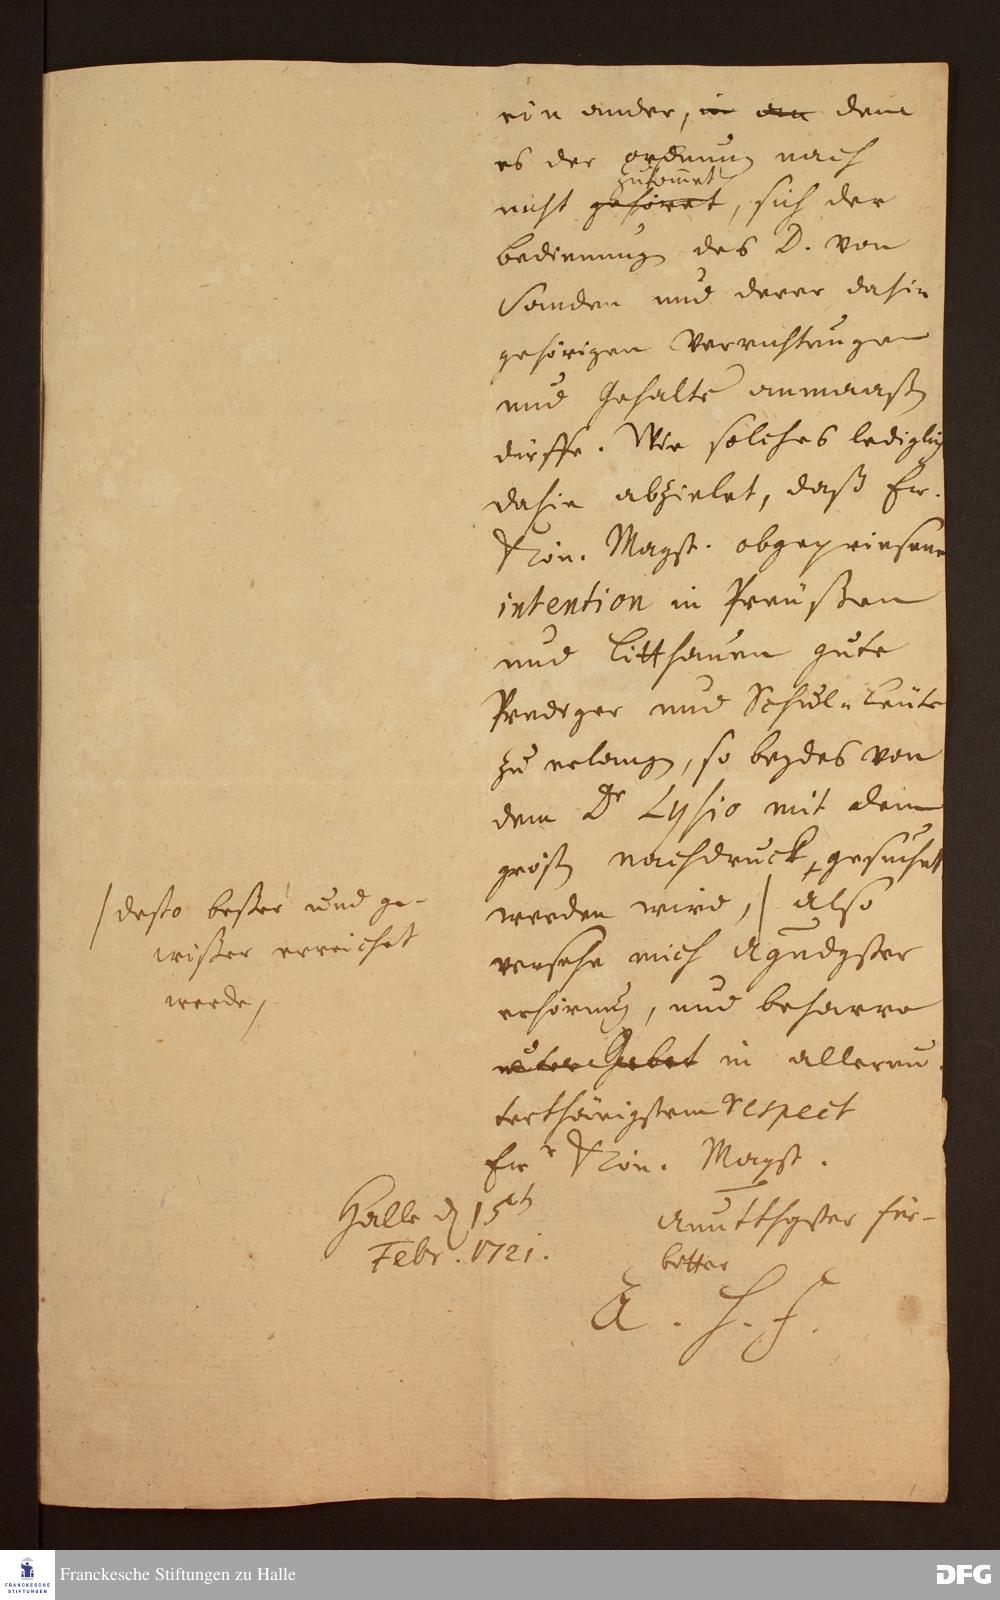 ein ander, in an dem
es der ordnung nach
zukommet
nicht gehöret, sich der
bedienung des D. von
Sanden und derer dahin
gehörigen Verrichtungen
und Gehalts anmaaßen
dürffe. Wie solches lediglich
dahin abzielet, daß Ew.
Kön. Majst. obgepriesene
intention in Preußen
und Litthauen gute
Prediger und Schul-Leute
zu erlangen, so beydes von
dem Dr Lysio mit dem
größten nachdruck gesuchet
werden wird, / also
/ desto beßer und ge-
wißer erreichet
werde,
versehe mich Agndgster
erhörung, und beharre
unter Gebet in allerun-
terthänigstem respect
Ew.r Kön. Majst.
Halle d 15th
Febr. 1721.
Auntthgster für-
bitter
A. H. F.
Franckesche Stiftungen zu Halle
FRANCKESCHE
STIFTUNGEN
DFG